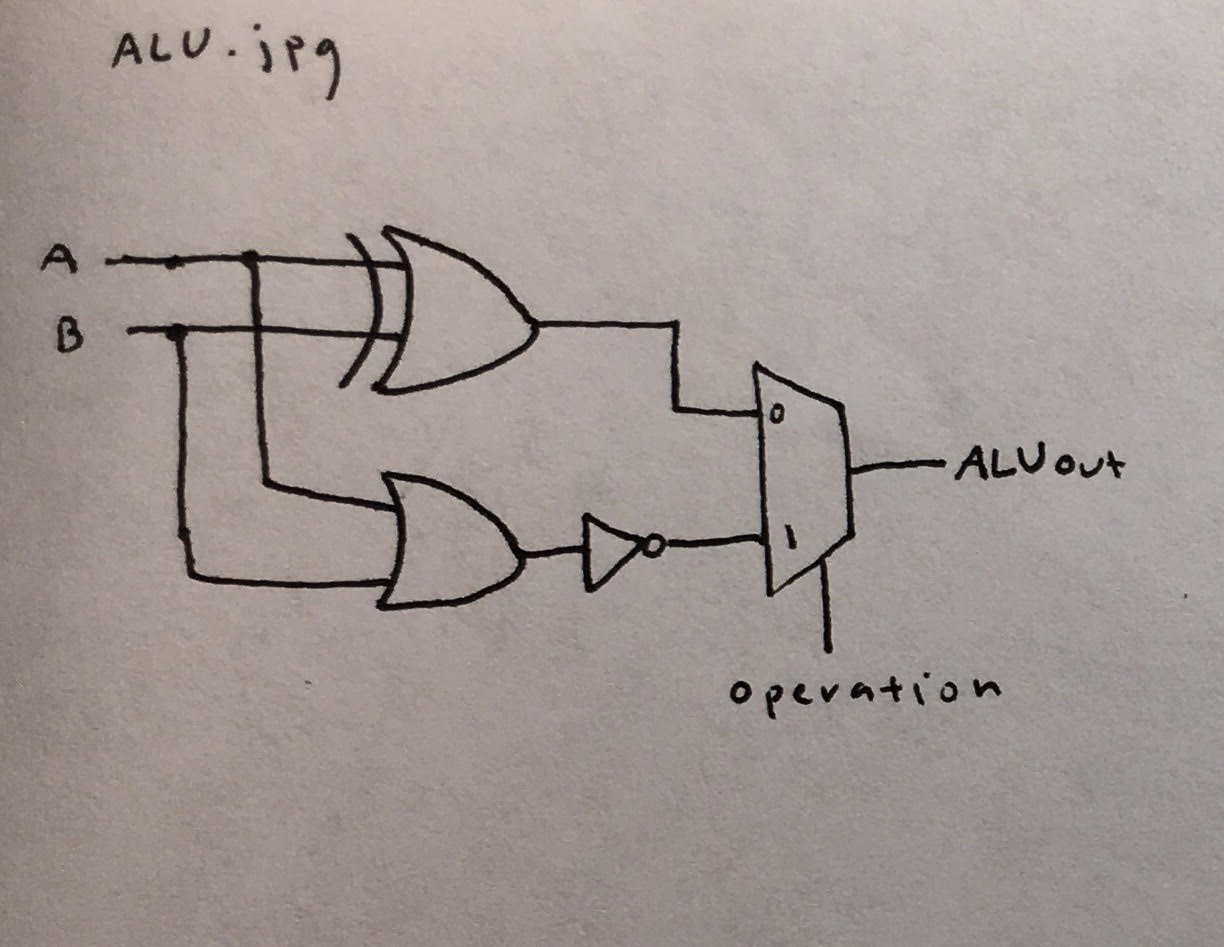 ALU.jpg
A
B
0
ALUout
1
operation